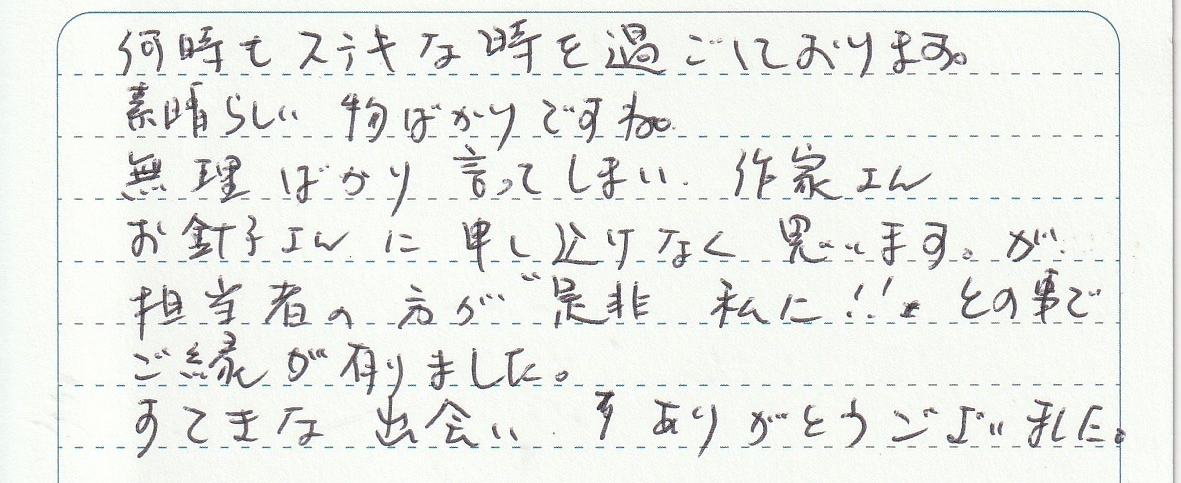 何時もステキな時を過ごしております。
素晴らしい物ばかりですね。
無理ばかり言ってしまい、作家さん
お針子さんに申し込けなく思います。が
担当者の方が"是非 私に!!" との事で
ご縁が有りました。
すてきな出会い ありがとうございました。